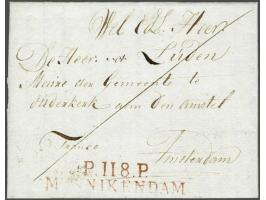 Wel Ed. Heer
De Heer Luden
Maire der Gemeente te
Ouderkerk aan den Amstel
Franco
Amsterdam
P.118.P.
M NNIKENDAM